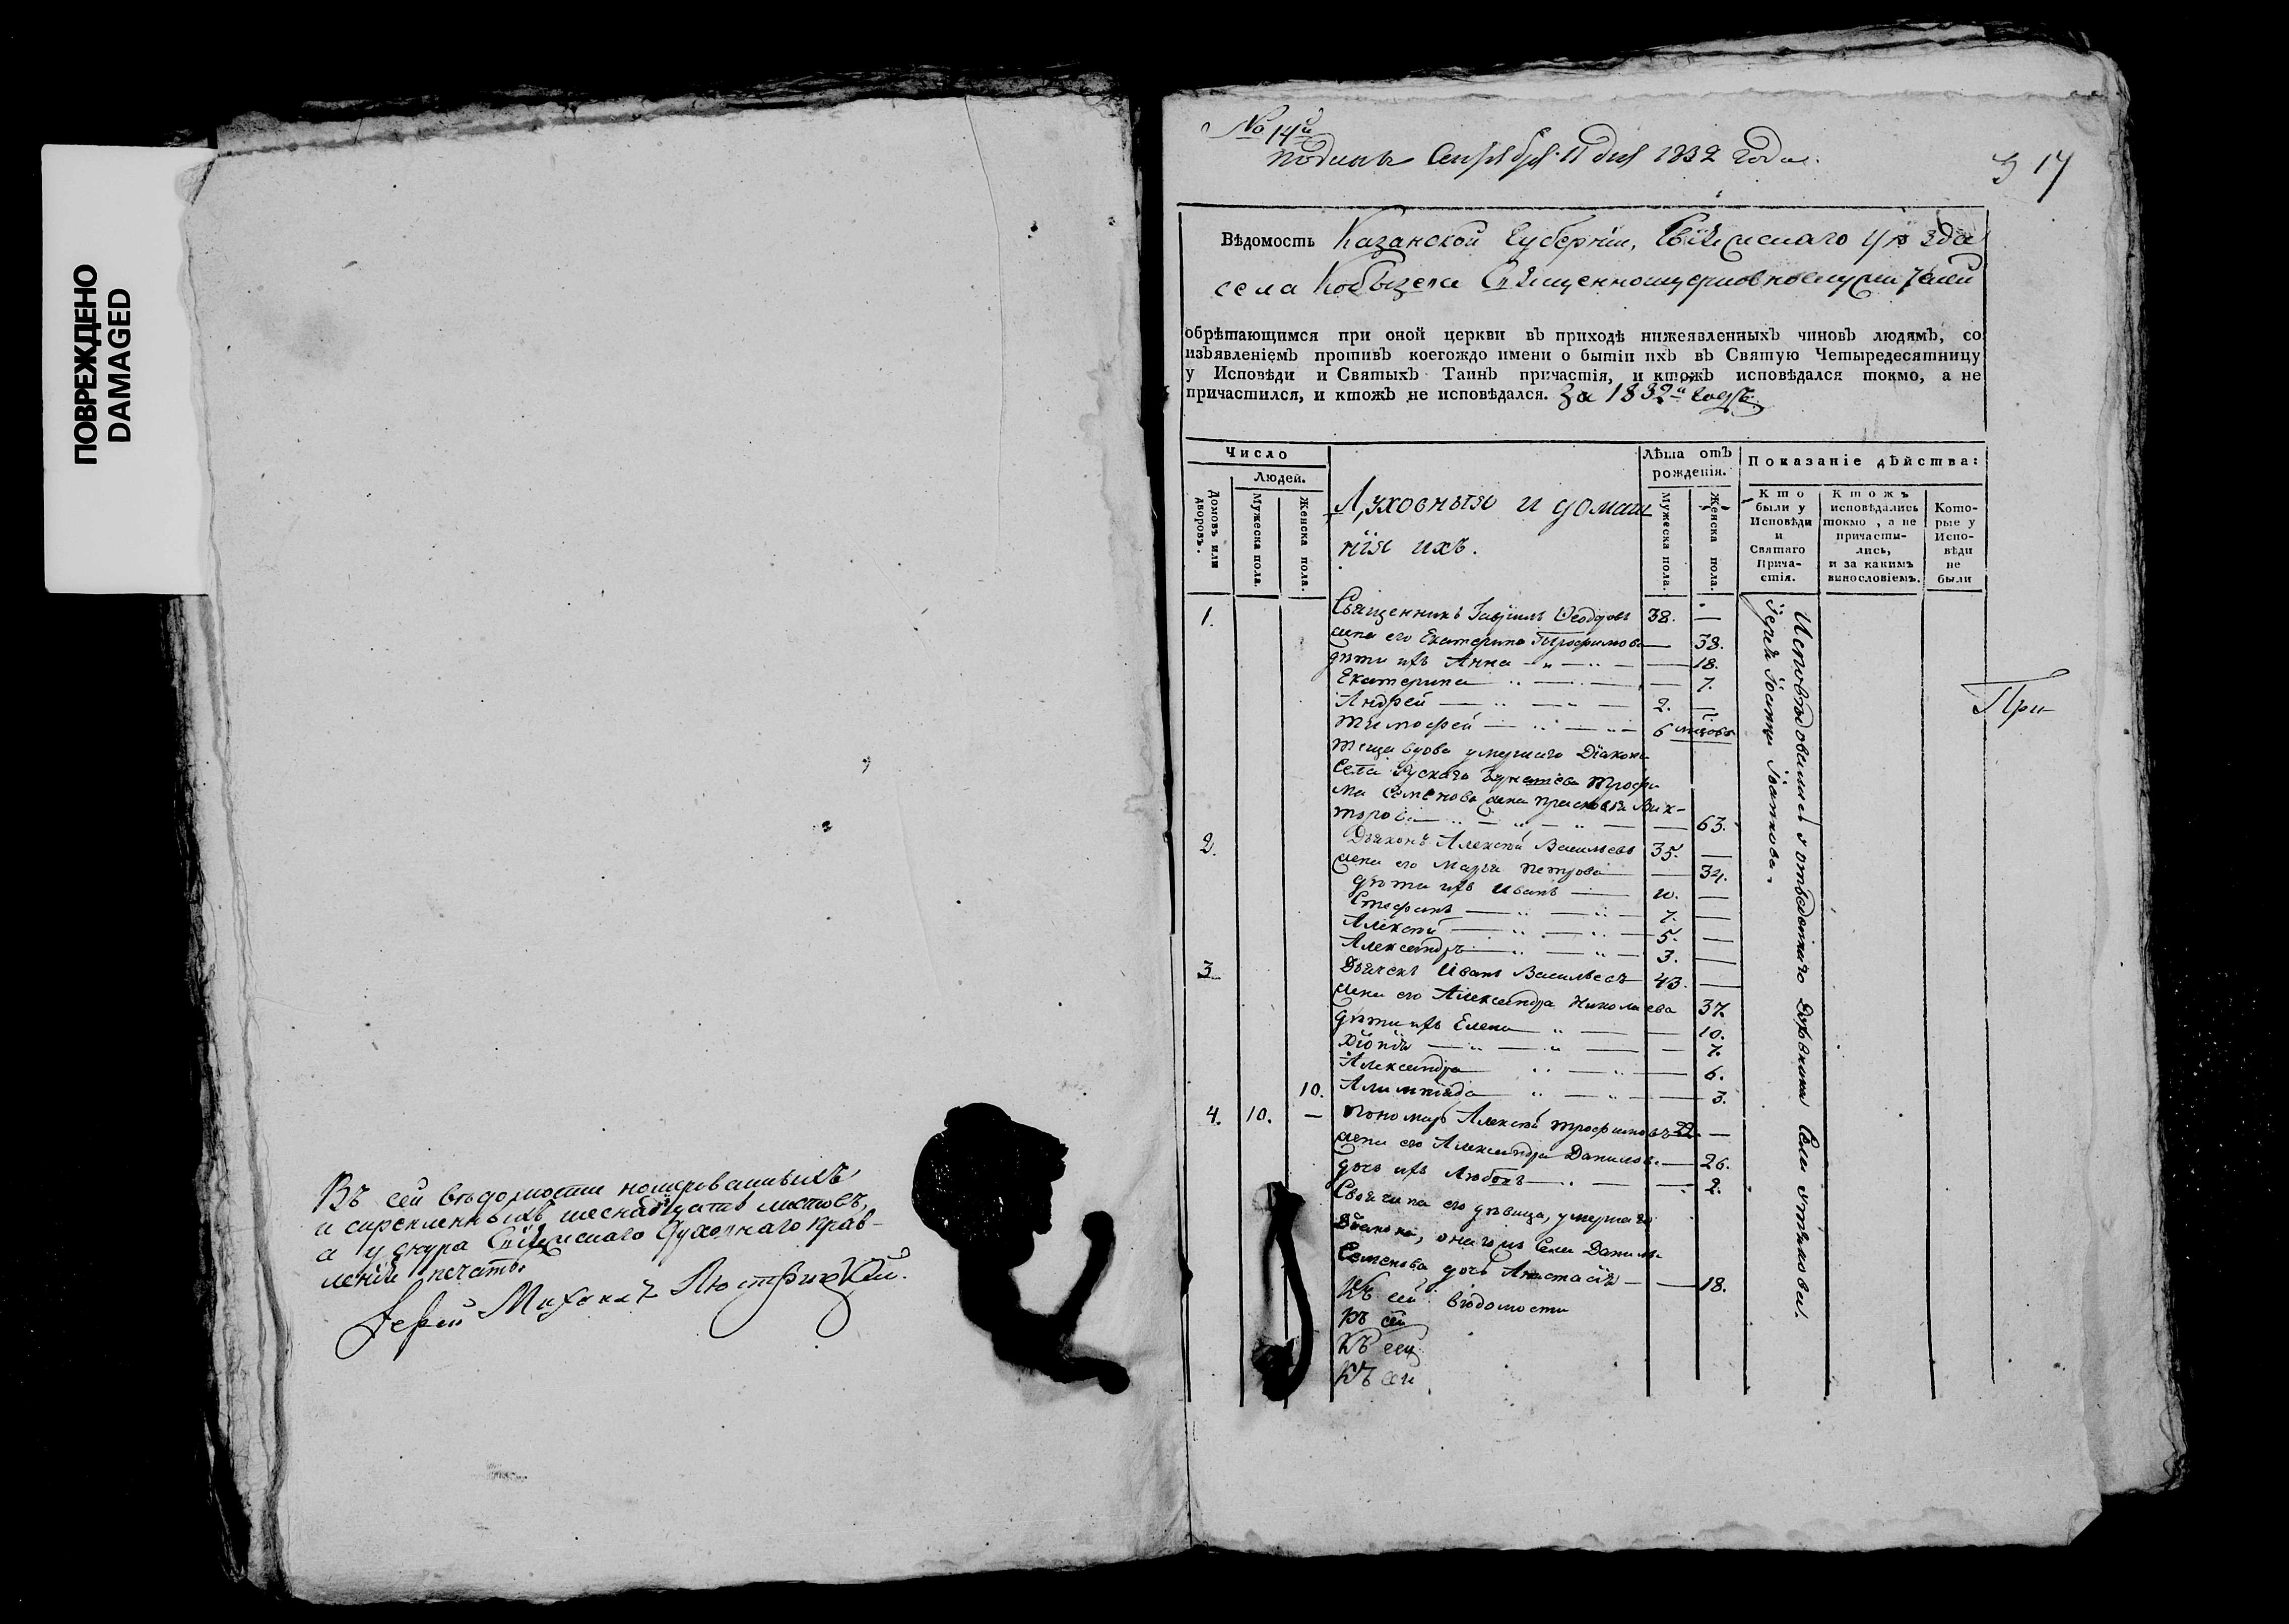 ПОВРЕЖДЕНО
DAMAGED
Въ сей ведомости номерованныхъ
и скрепленныхъ шеснадцать листовъ,
а у снура Свіяжскаго Духовнаго прав-
ленія печать.
Іерей Михаилъ
№ 14й
подана Сентября 11 дня 1832 года.
317
Вѣдомость Казанской Губерніи, Свіяжскаго уѣзда
села Кобызева Священноцерковнослужителей
обрѣтающимся при оной церкви въ приходѣ нижеявленныхъ чиновъ людямъ, со
изъявленіемъ противъ коегождо имени о бытіи ихъ въ Святую Четыредесятницу
у Исповѣди и Святыхъ Таинъ причастія, и ктожъ исповѣдался токмо, а не
причастился, и ктожъ не исповѣдался. За 1832й годъ.
Число
Людей.
Домовъ или дворовъ.
Мужеска пола.
Женска пола.
Духовныя и домаш
нія ихъ.
Лѣта отъ
рожденія.
Мужеска пола.
Женска пола.
Показаніе дѣйства:
Кто
были у
Исповѣди
и
Святаго
Прича-
стія.
Ктожъ
исповѣдались
токмо, а не
причасти-
лись,
и за какимъ
винословіемъ.
Кото-
рые у
Испо-
вѣди
не
были
1. Священникъ Гавріилъ Ѳеодоровъ 38. —
жена его Екатерина Трофимова — 38.
дѣти ихъ Анна — 18.
Екатерина — 7.
Андрей — 2. —
Тимофей — 6 мѣсяцовъ
теща вдова умершаго Діакона
села Рускаго Трофи
ма Семенова жена Прасковья Вик-
торова — 63.
2. Діяконъ Алексѣй Васильевъ 35. —
жена его Марья Петрова — 34.
дѣти ихъ Иванъ — 10. —
Стефанъ — 7. —
Алексѣй — 5. —
Александръ — 3. —
3. Дьячекъ Иванъ Васильевъ 43. —
жена его Александра Николаева 37.
дѣти ихъ Елена — 10.
Хіонія — 7.
Александра — 6.
10. Алимпіада — 3.
4. 10. — Пономарь Алексѣй Трофимовъ 22. —
жена его Александра Данилова — 26.
дочь ихъ Любовь — 2.
Своячина его дѣвица, умершаго
Діакона, онагожъ села Данила
Семенова дочь Анастасія — 18.
Исповѣдовались у отведеннаго Духовника села
Іерея Іоанна Іоаннова.
Къ сей ведомости
Къ сей
Къ сей
Къ сей
При-